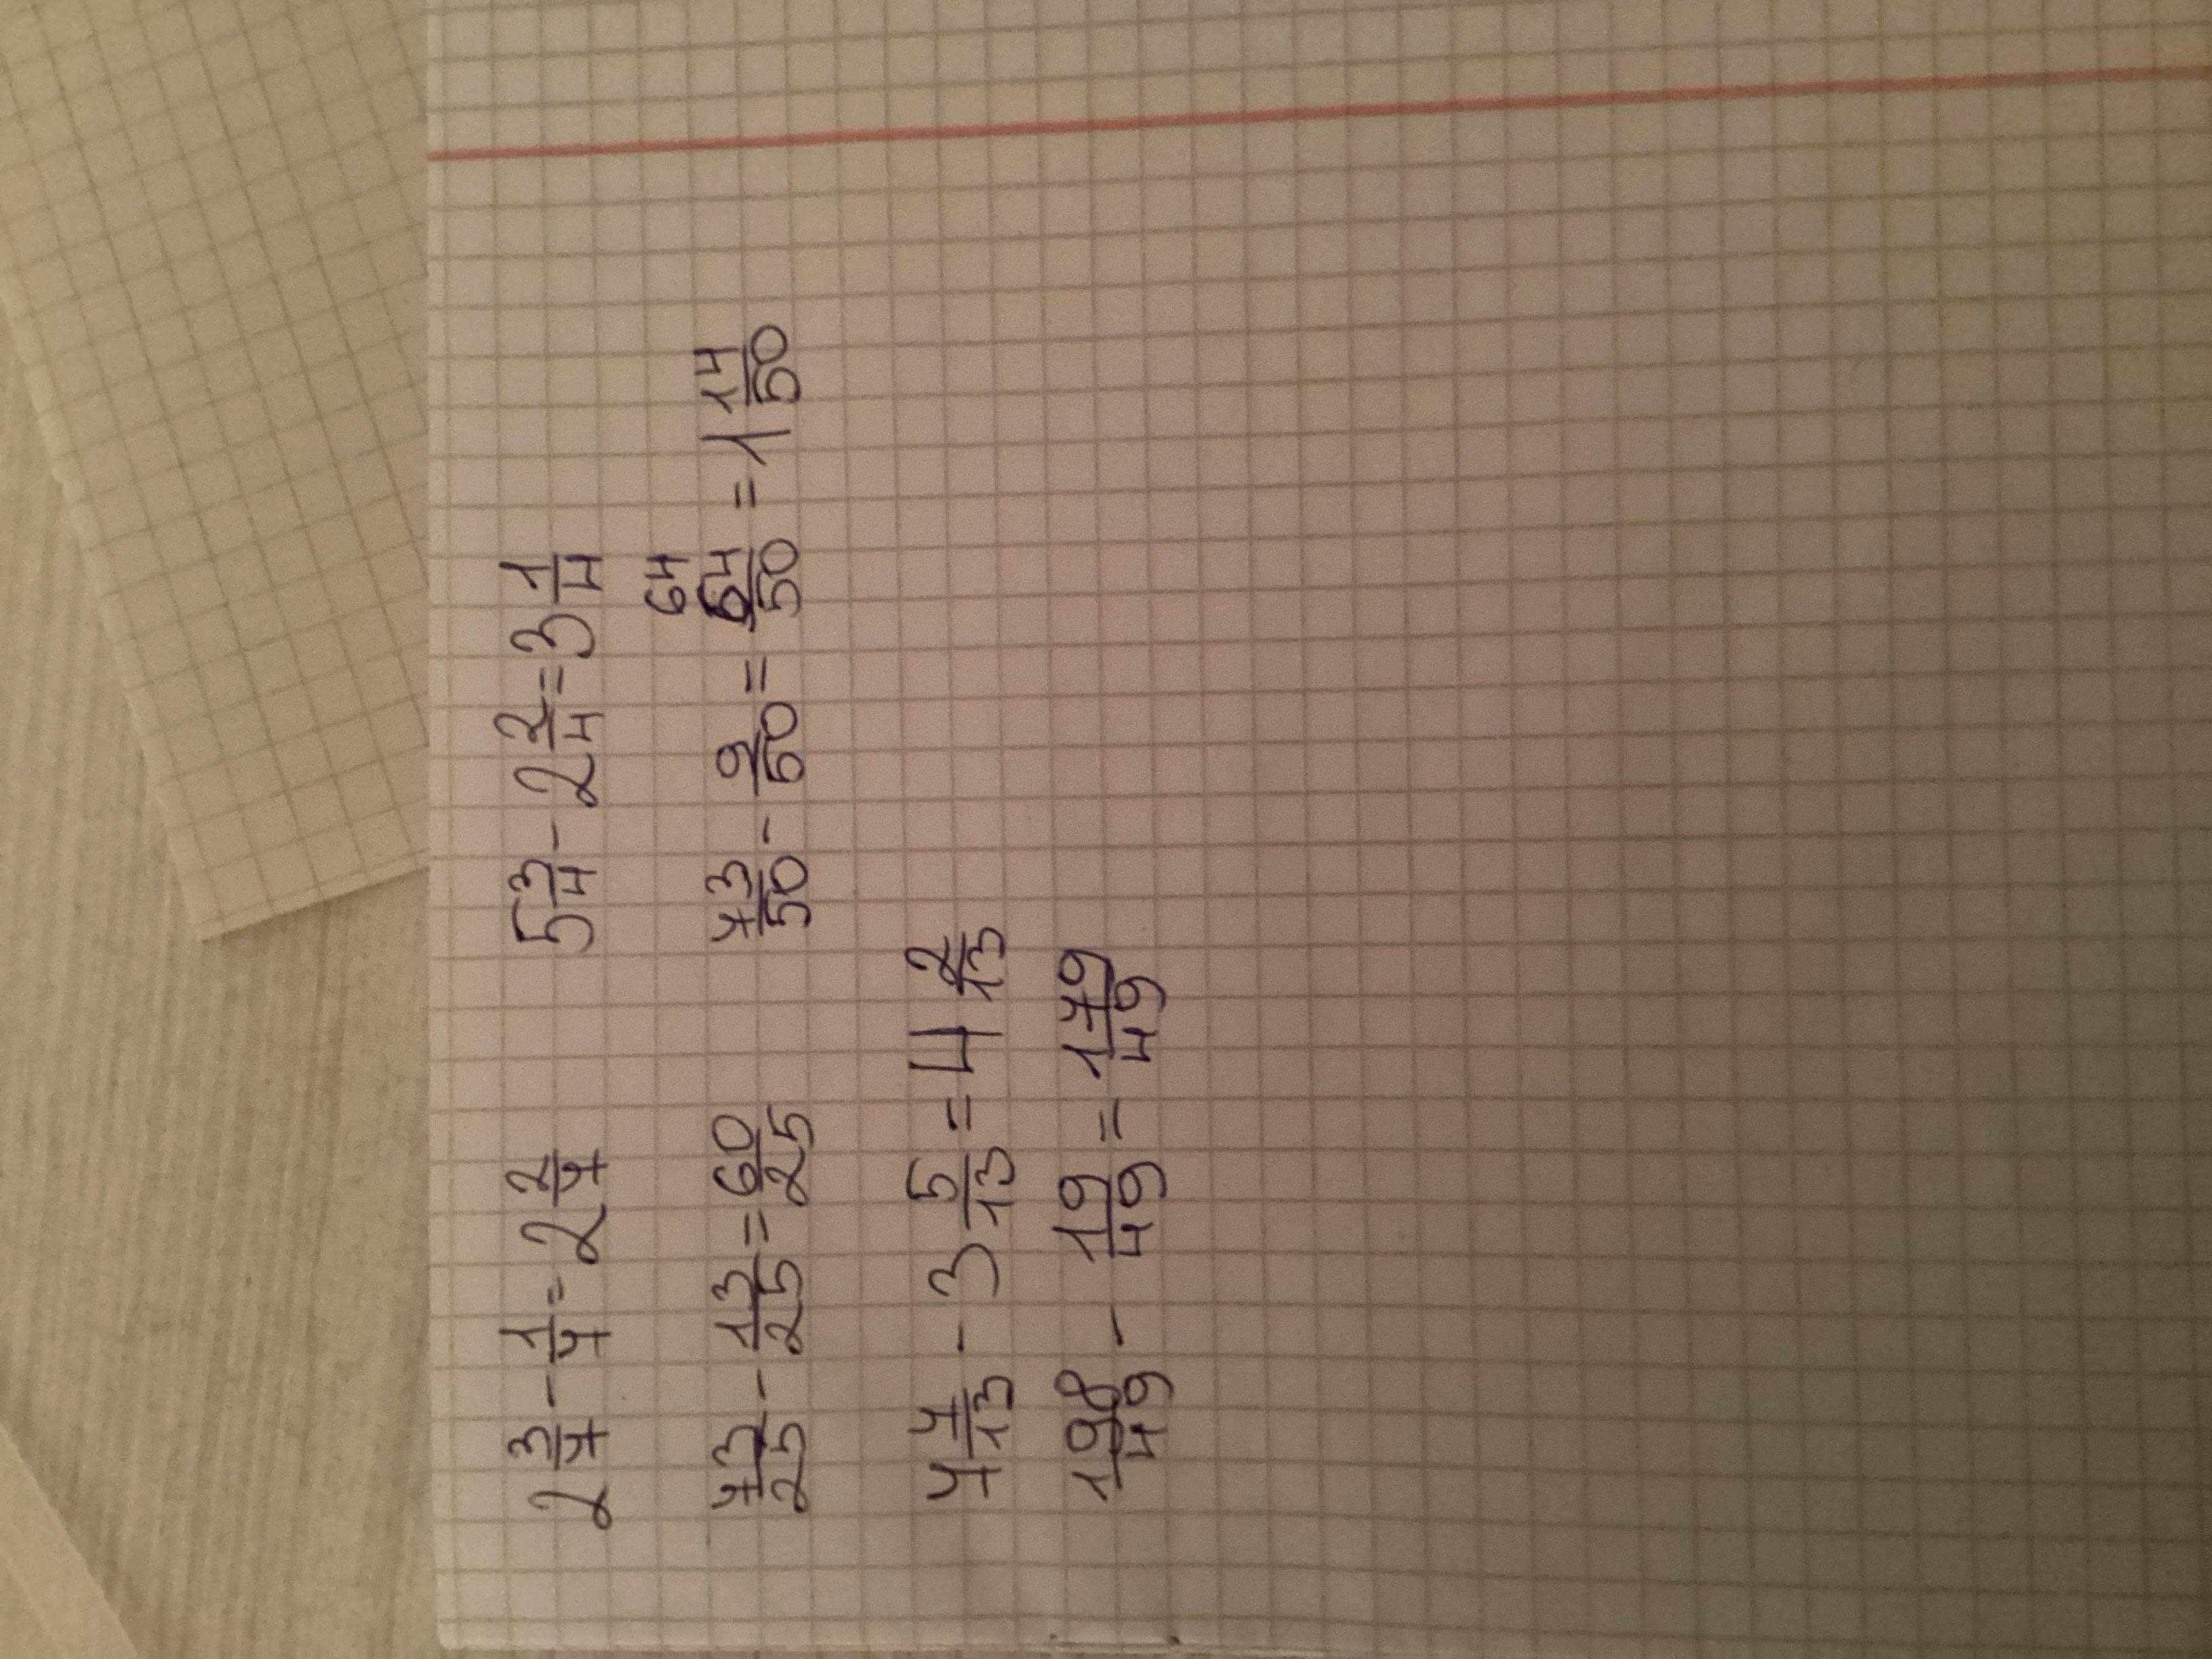 2 3/7 - 1/7 = 2 2/7   5 3/4 - 2 2/4 = 3 1/4
73/25 - 13/25 = 60/25   73/50 - 9/50 = 64/50 64 = 1 14/50
7 7/13 - 3 5/13 = 4 2/13
198/49 - 19/49 = 179/49